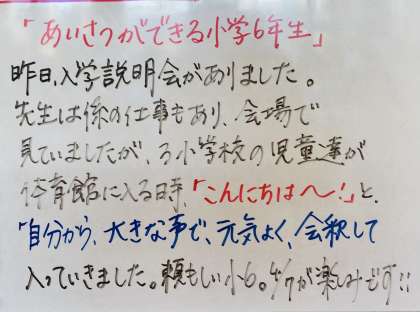 「あいさつができる小学6年生」
昨日、入学説明会がありました。
先生は係の仕事もあり、会場で
見ていましたが、3小学校の児童達が
体育館に入る時、「こんにちは〜！」と、
「自分から、大きな声で、元気よく、会釈して
入っていきました。頼もしい小6。4/7が楽しみです!!